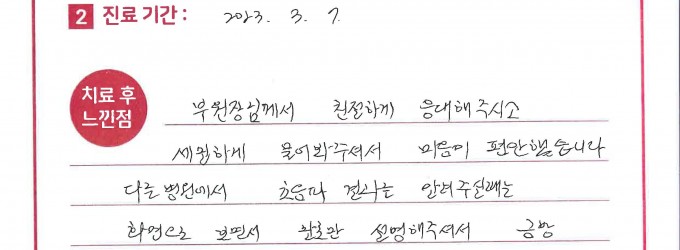 2 진료 기간 : 2023. 3. 7.
치료 후
느낀점
부원장님께서 친절하게 응대해주시고
세밀하게 물어봐주셔서 마음이 편안했습니다
다른 병원에서 초음파 결과는 알려주실때는
화면으로 보면서 설명해주셔서 궁금